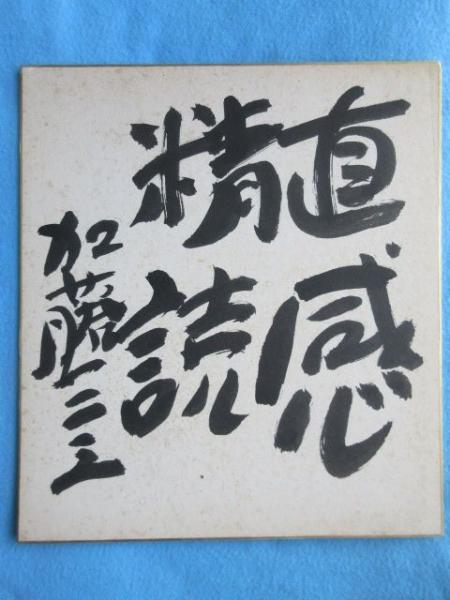 直感
精読
加藤一二三